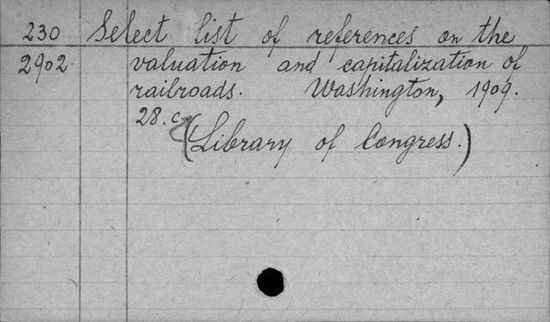 230 Select list of references on the
2902. valuation and capitalization of
railroads. Washington, 1909.
28. c.
(Library of Congress.)